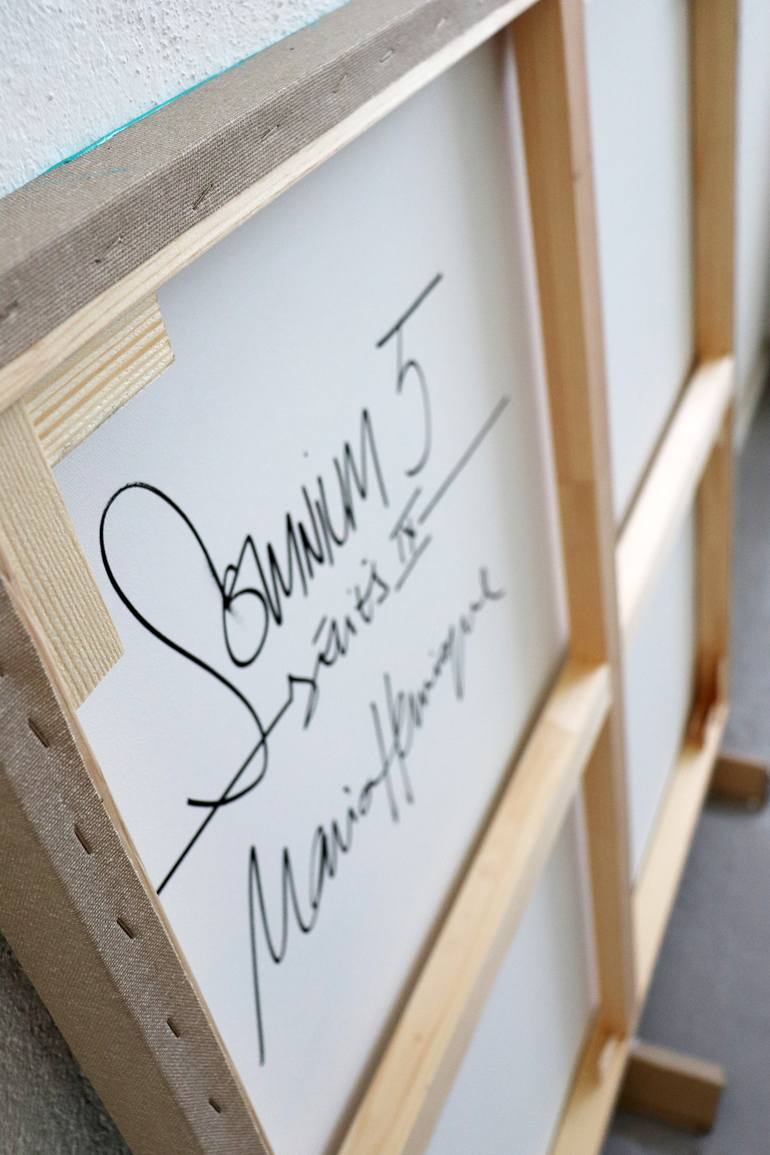 Somnium 5
séris IX
Maria Henrique